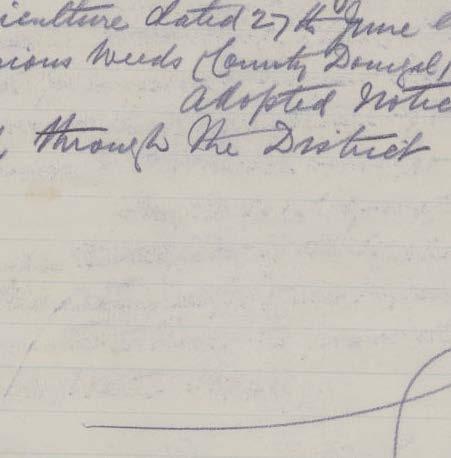 iculture dated 27th June
ious Weeds (County Donegal)
Adopted Notic
through the District